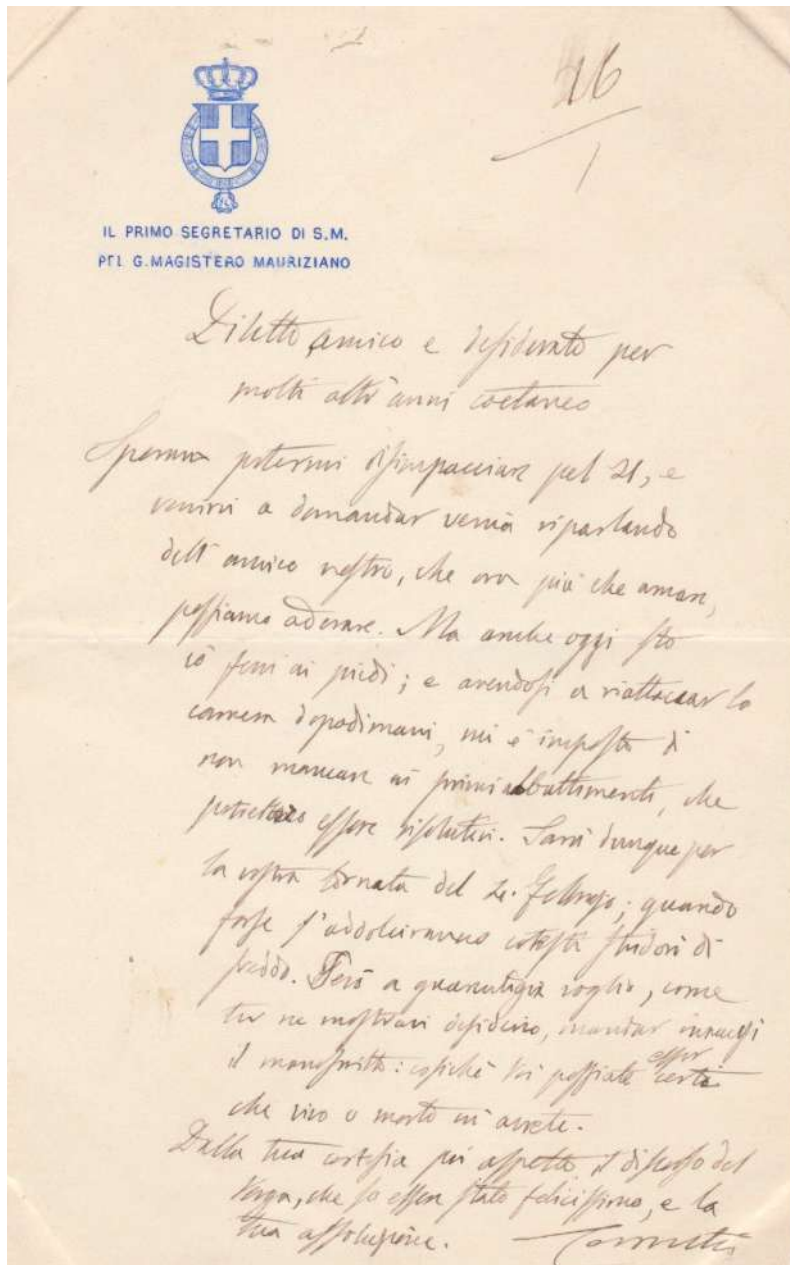 16
1
IL PRIMO SEGRETARIO DI S.M.
PEL G. MAGISTERO MAURIZIANO
Diletto amico e desiderato per
molti altri anni coetaneo
Sperava potermi disimpacciare pel 21, e
venirvi a domandar venia riparlando
dell'amico nostro, che ora più che amare,
possiamo adorare. Ma anche oggi sto
ai piedi; e avendosi a riattaccar la
camera dopodimani, mi è imposto di
non mancare ai primi abbattimenti, che
potrebbero essere risolutivi. Sarà dunque per
la vostra tornata del 4 Febbrajo; quando
forse s'addolciranno cotesti stridori di
freddo. Però a guarentigia voglio, come
tu ne mostravi desiderio, mandar innanzi
il manoscritto: cosichè voi possiate esser certi
che vivo o morto m'avrete.
Dalla tua cortesia poi aspetto il discorso del
Verga, che so essere stato felicissimo, e la
tua assoluzione.